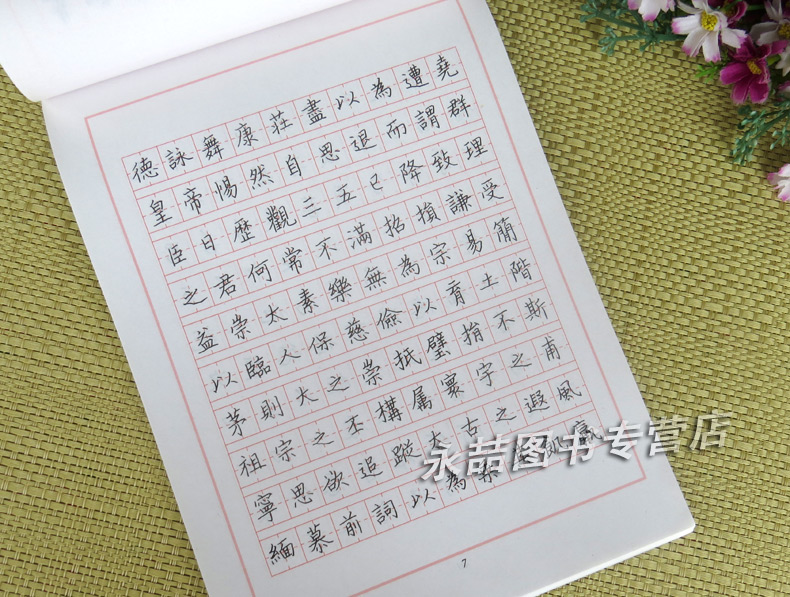 德詠舞康荘盡以為遭堯
皇帝惕然自思退而謂群
臣曰歷觀三五已降致理
之君何常不滿招損謙受
益崇太素樂無為宗易簡
以臨人保慈儉以育土階
茅則大之崇抵璧捐不斯
祖宗之丕構属寰宇之甫
寧思欲追蹤太古之遐風
緬慕前詞以為
7
永喆图书专营店